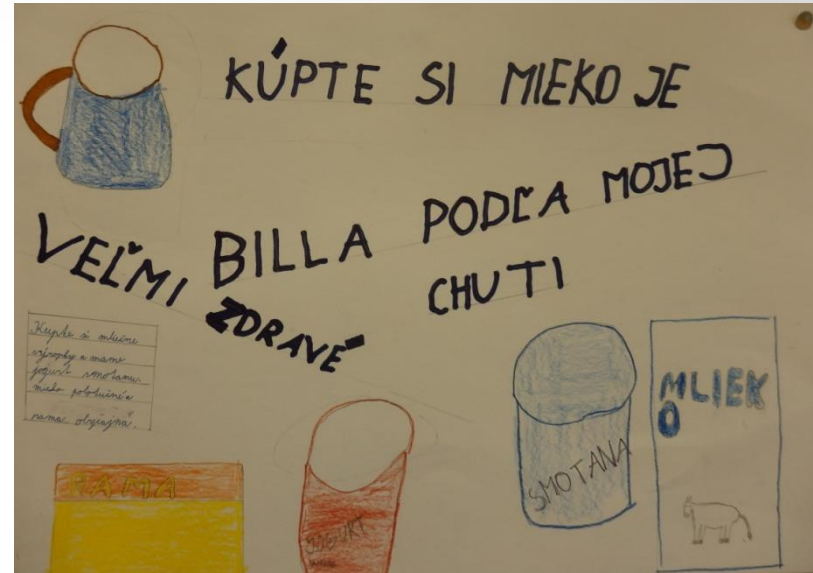 KÚPTE SI MIEKO JE
VEĽMI ZDRAVÉ
BILLA PODĽA MOJEJ
CHUTI
Kupte si mliečne
výropky a mame
jogurt smotanu
mieko polotučné a
rama obyčajná.
RAMA
JOGURT
SMOTANA
MLIEK
O